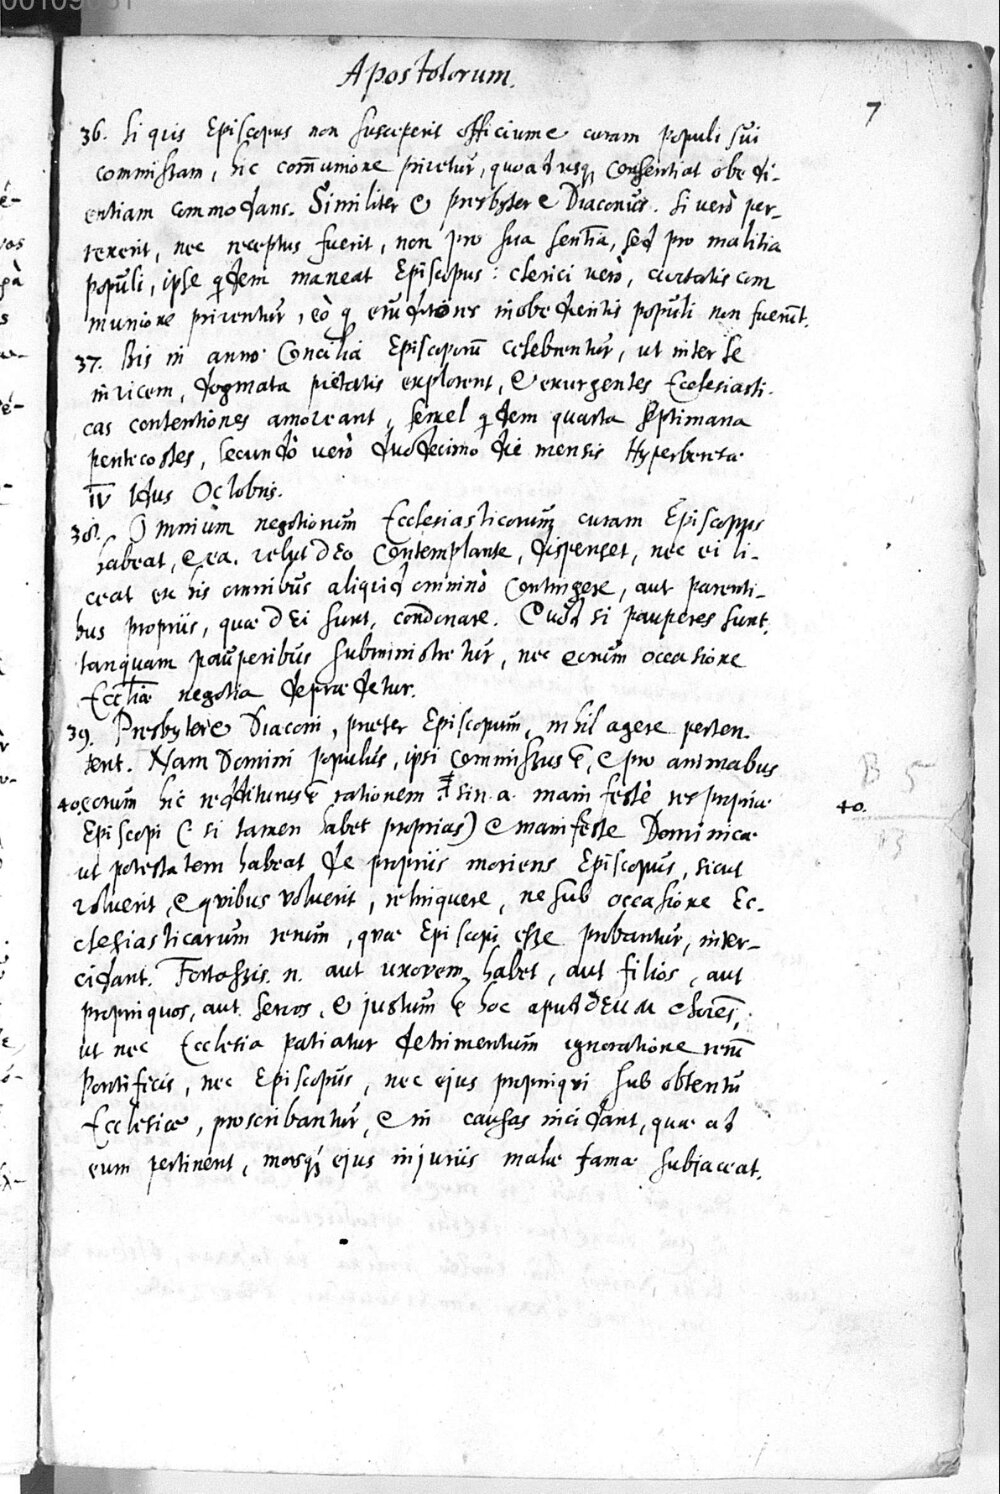 00109031
Apostolorum.
7
36. Si quis Episcopus non susceperit officium e curam populi sui
commissam, hic com̃unione privetur, quoadusq; consentiat obedi-
entiam commodans. Similiter e presbyter e Diaconus. Si verò per-
rexerit, nec receptus fuerit, non pro sua sentĩa, sed pro malitia
populi, ipse qdem maneat Episcopus: clerici verò, civitatis com
munione priventur, eò q eruditores inobedientis populi non fuerũt.
37. Bis in anno Concilia Episcoporũ celebrentur, ut inter se
invicem, dogmata pietatis explorent, e exurgentes Ecclesiasti-
cas contentiones amoveant, semel qdem quarta septimana
pentecostes, secundò verò duodecimo die mensis Hyperberetæ
IV Idus Octobris.
38. Omnium negotiorum Ecclesiasticorum curam Episcopus
habeat, e ea, velut DEO contemplante, dispenset, nec ei li-
ceat ex his omnibus aliquid omninò contingere, aut parenti-
bus propriis, quæ DEI sunt, condonare. Quòd si pauperes sunt,
tanquam pauperibus subministretur, nec eorum occasione
Eccliæ negotia deprædetur.
39. Presbyteri e Diaconi, præter Episcopum, nihil agere perten-
tent. Nam Domini populus, ipsi commissus ẽ, e pro animabus
40. eorum hic redditurus ẽ rationem sin. a. manifestè res propriæ
40.
B 5
Episcopi (si tamen habet proprias) e manifestè Dominicæ
ut potestatem habeat de propriis moriens Episcopus, sicut
voluerit, e quibus voluerit, relinquere, ne sub occasione Ec-
clesiasticarum rerum, quæ Episcopi esse probantur, inter-
cidant. Fortassis. n. aut uxorem habet, aut filios, aut
propinquos, aut servos, e justum ẽ hoc apud DEUM e hoĩes,
ut nec Ecclesia patiatur detrimentum ignoratione rerũ
Pontificis, nec Episcopus, nec ejus propinqui sub obtentu
Ecclesiæ, proscribantur, e in causas incidant, quæ ad
eum pertinent, morsq; ejus injuriis malæ famæ subjaceat.